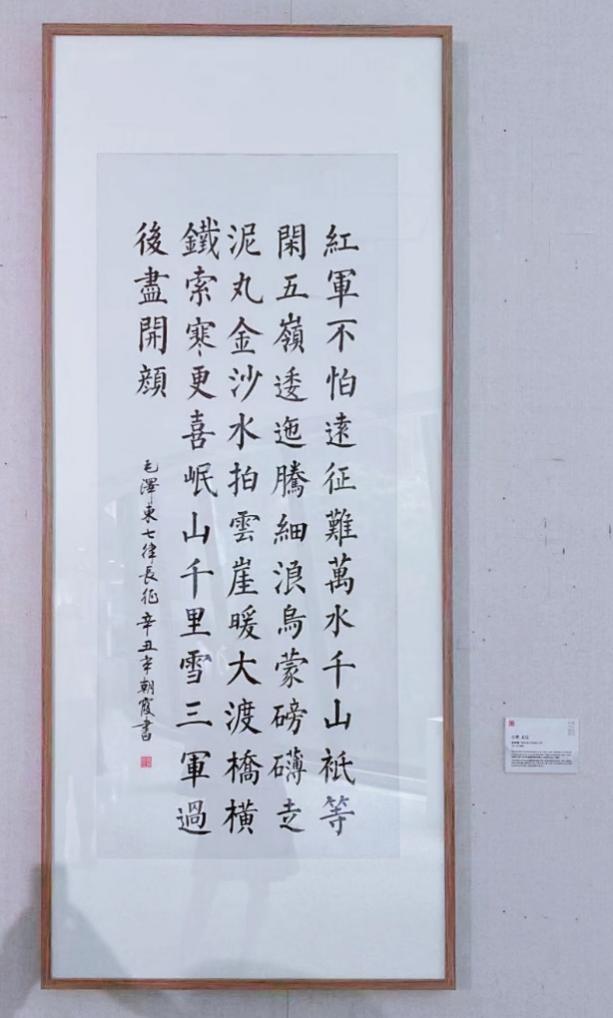 紅軍不怕遠征難萬水千山祇等
閑五嶺逶迤騰細浪烏蒙磅礴走
泥丸金沙水拍雲崖暖大渡橋横
鐵索寒更喜岷山千里雪三軍過
後盡開顔
毛澤東七律長征辛丑年朝霞書